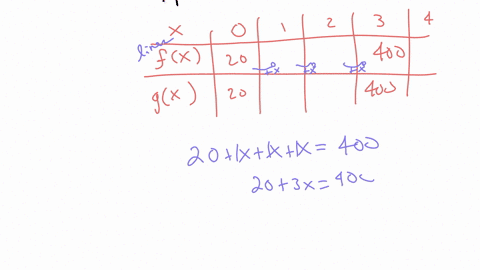 x 0 1 2 3 4
linear
f(x) 20 +x +x +x 400
g(x) 20 400
20+1x+1x+1x = 400
20+3x=400